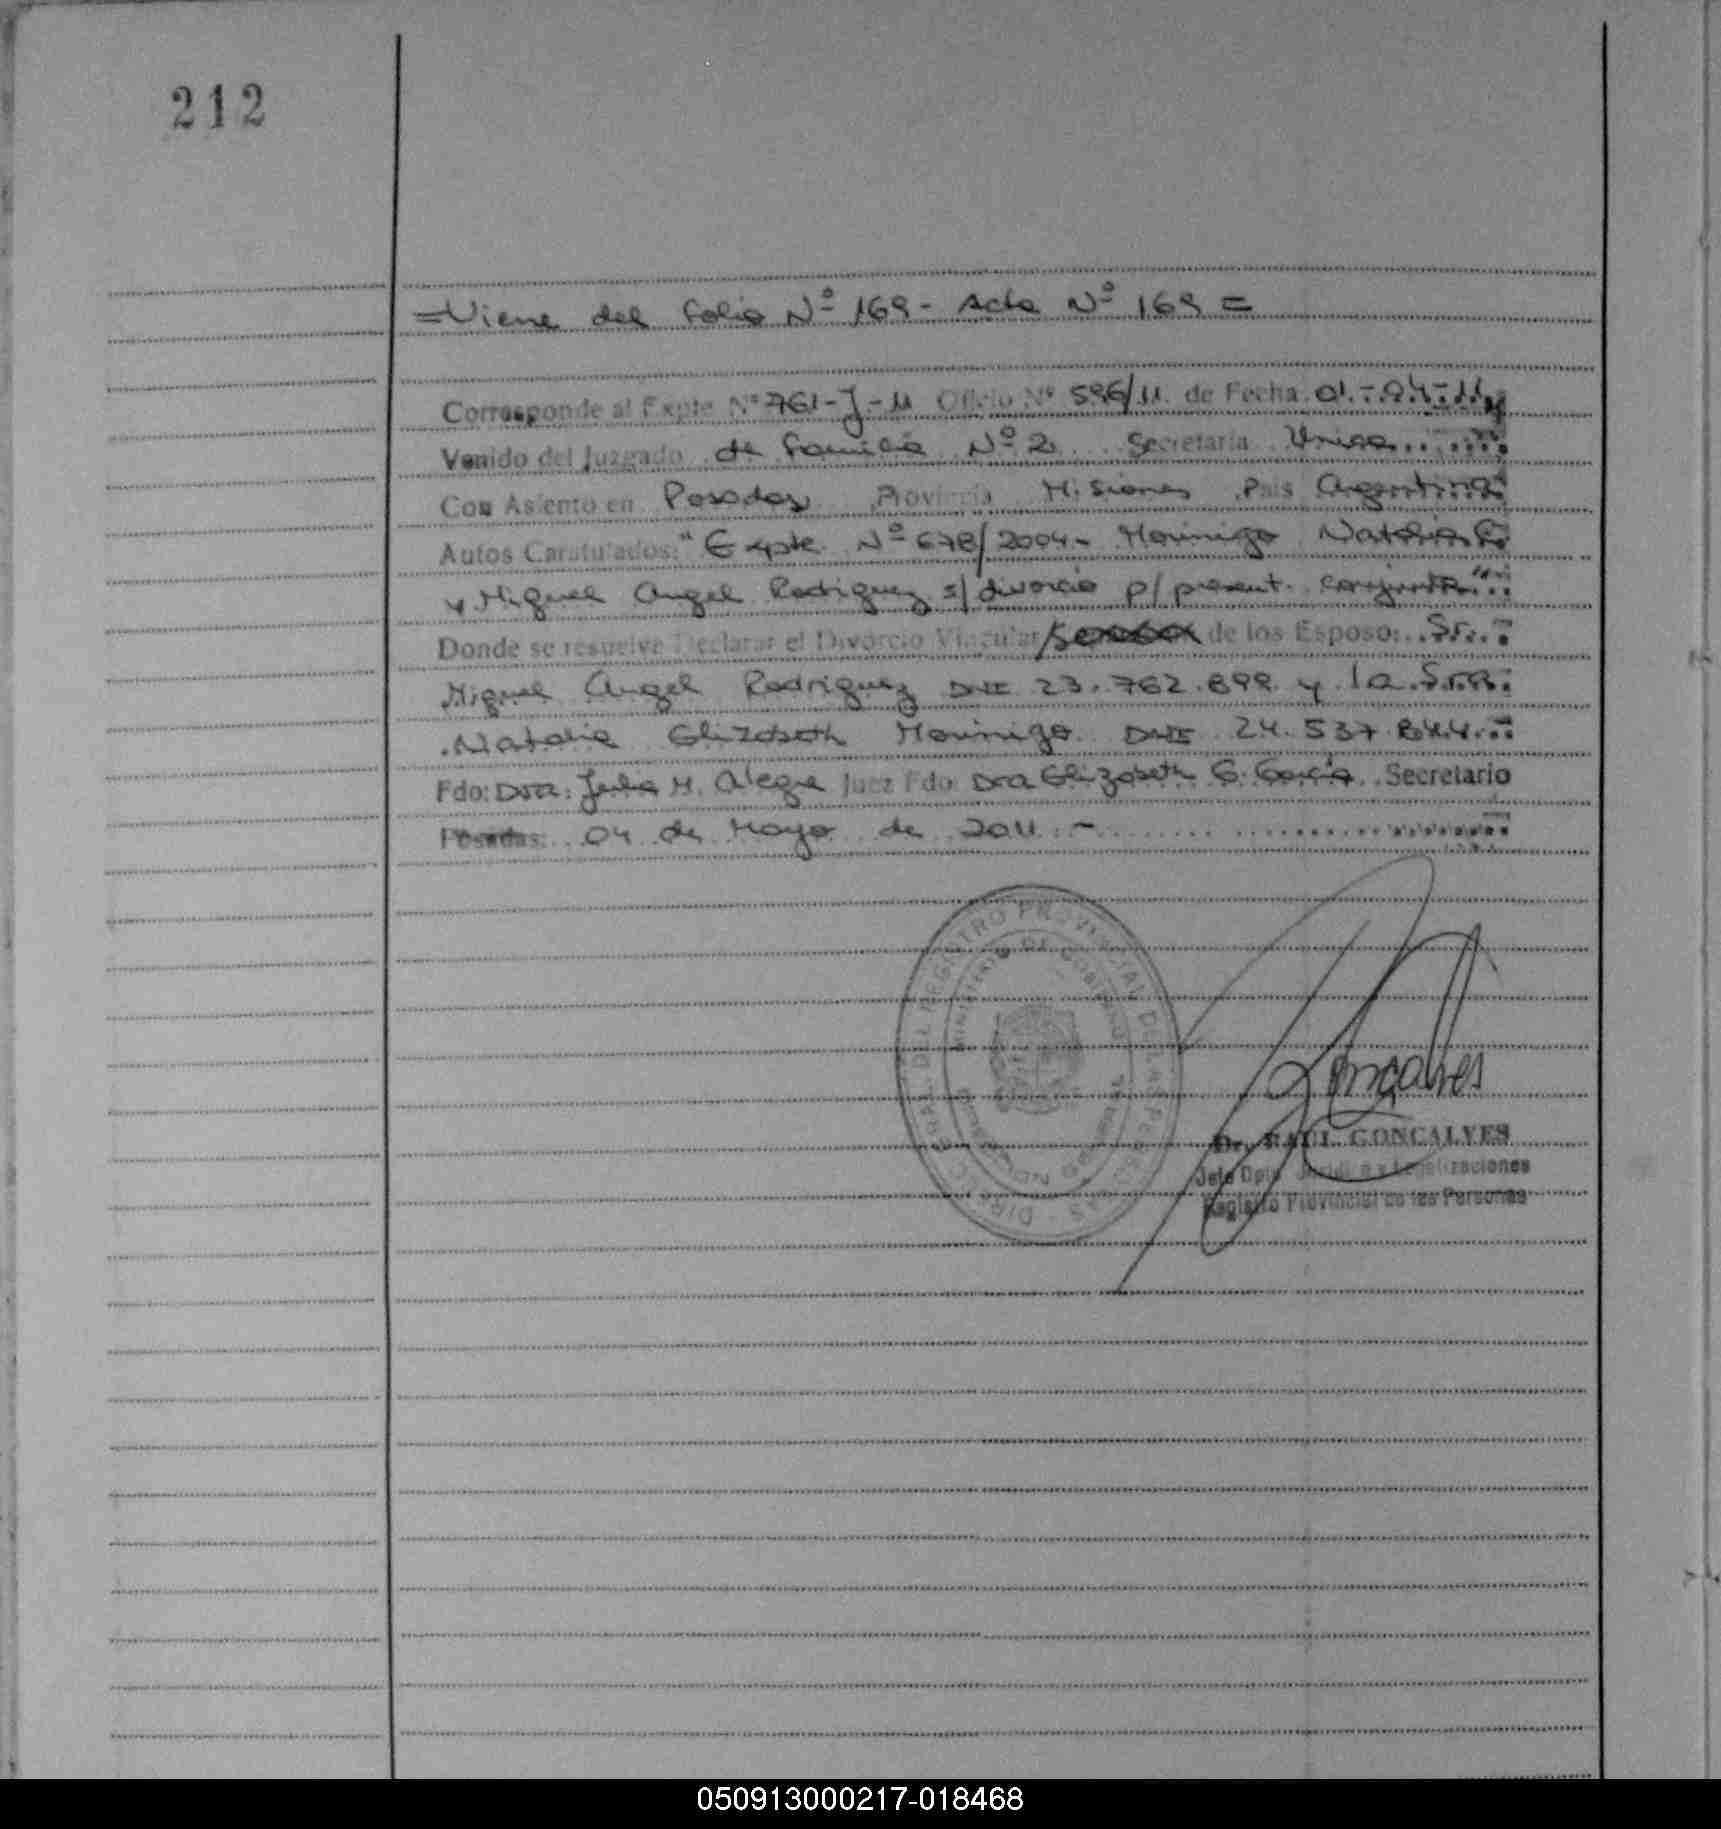 212
=Viene del folio Nº 169 - Acta Nº 169 =
Corresponde al Expte Nº 761-J-11 Oficio Nº 596/11 de Fecha 01-04-11
Venido del Juzgado de Familia Nº 2 Secretaría Unica
Con Asiento en Posadas Provincia Misiones País Argentina
Autos Caratulados: "Expte Nº 678/2004 - Morinigo Natalia E.
y Miguel Angel Rodriguez s/divorcio p/present. conjunta"
Donde se resuelve Declarar el Divorcio Vincular/ de los Esposo: Sr.
Miguel Angel Rodriguez DNI 23.762.899 y la Sra.
Natalia Elizabeth Morinigo DNI 24.537.844
Fdo: Dra. Julia M. Alegre Juez Fdo Dra Elizabeth G. García Secretario
Posadas: 04 de Mayo de 2011 -
Goncalves
DIRECC GRAL. DEL REGISTRO PROVINCIAL DE LAS PERSONAS
MINISTERIO DE GOBIERNO
Dr. RAUL GONCALVES
Jefe Dpto. Jurídica y Legalizaciones
Registro Provincial de las Personas
050913000217-018468